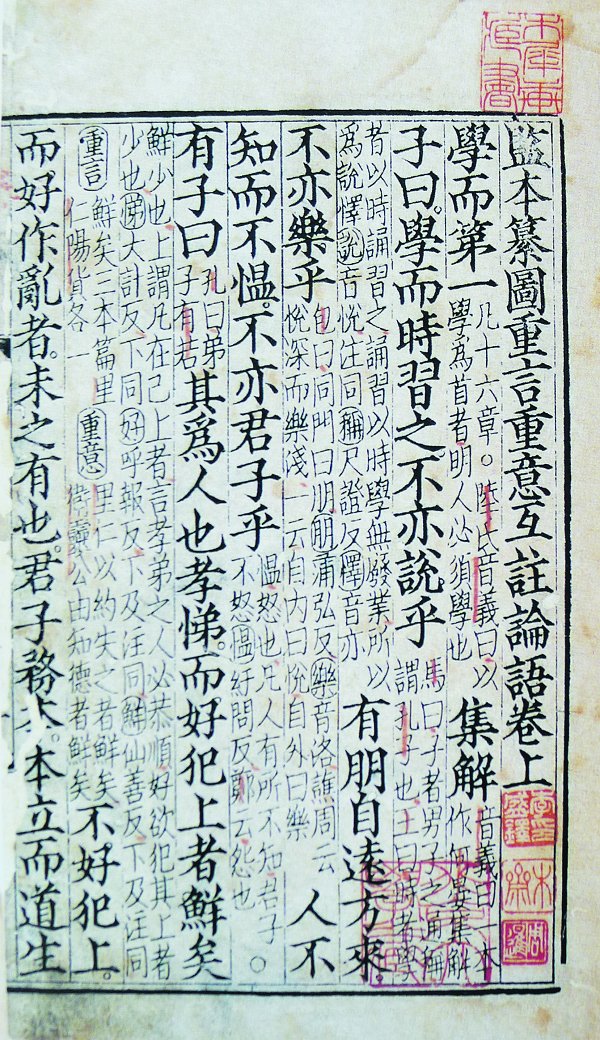 監本纂圖重言重意互註論語卷上
學而第一 凡十六章○陸氏音義曰以學爲首者明人必須學也 集解 音義曰一本作何晏集解
子曰。學而時習之不亦說乎 馬曰子者男子之通稱謂孔子也王曰時者學
者以時誦習之誦習以時學無廢業所以爲說懌說音悅注同稱尺證反懌音亦 有朋自遠方來。
不亦樂乎 包曰同門曰朋朋蒲弘反樂音洛譙周云悅深而樂淺一云自內曰悅自外曰樂 人不
知而不慍。不亦君子乎 慍怒也凡人有所不知君子不怒慍紆問反鄭云怨也○
有子曰 孔曰弟子有若 其爲人也孝悌。而好犯上者鮮矣
鮮少也上謂凡在己上者言孝弟之人必恭順好欲犯其上者少也悌大計反下同好呼報反下及注同鮮仙善反下及注同
重言 鮮矣三本篇里仁陽貨各一 重意 里仁以約失之者鮮矣衛靈公由知德者鮮矣 不好犯上。
而好作亂者。未之有也。君子務本。本立而道生